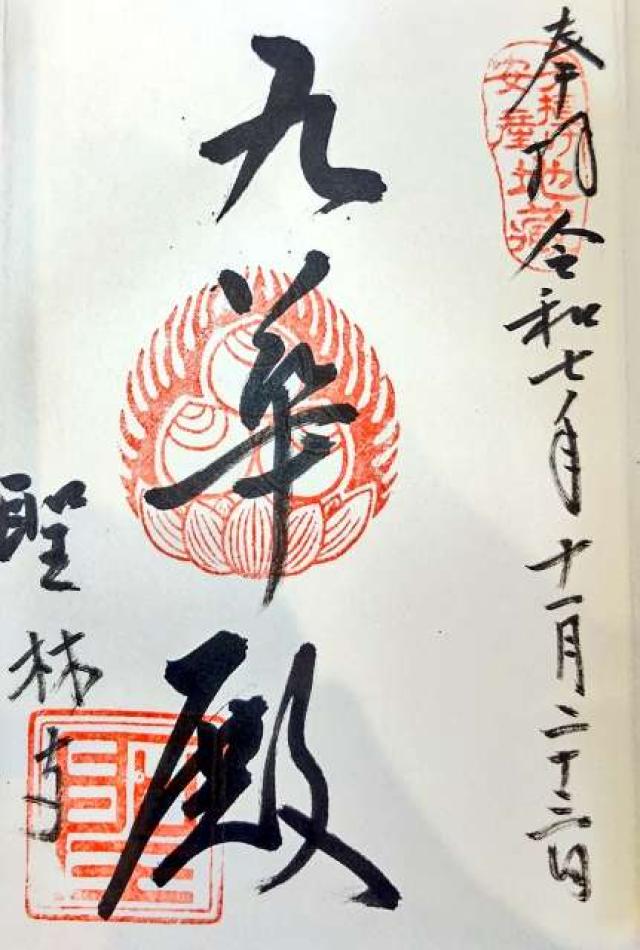 奉拝 令和七年 十一月二十三日
子授け
安産 地蔵
九華殿
聖林寺